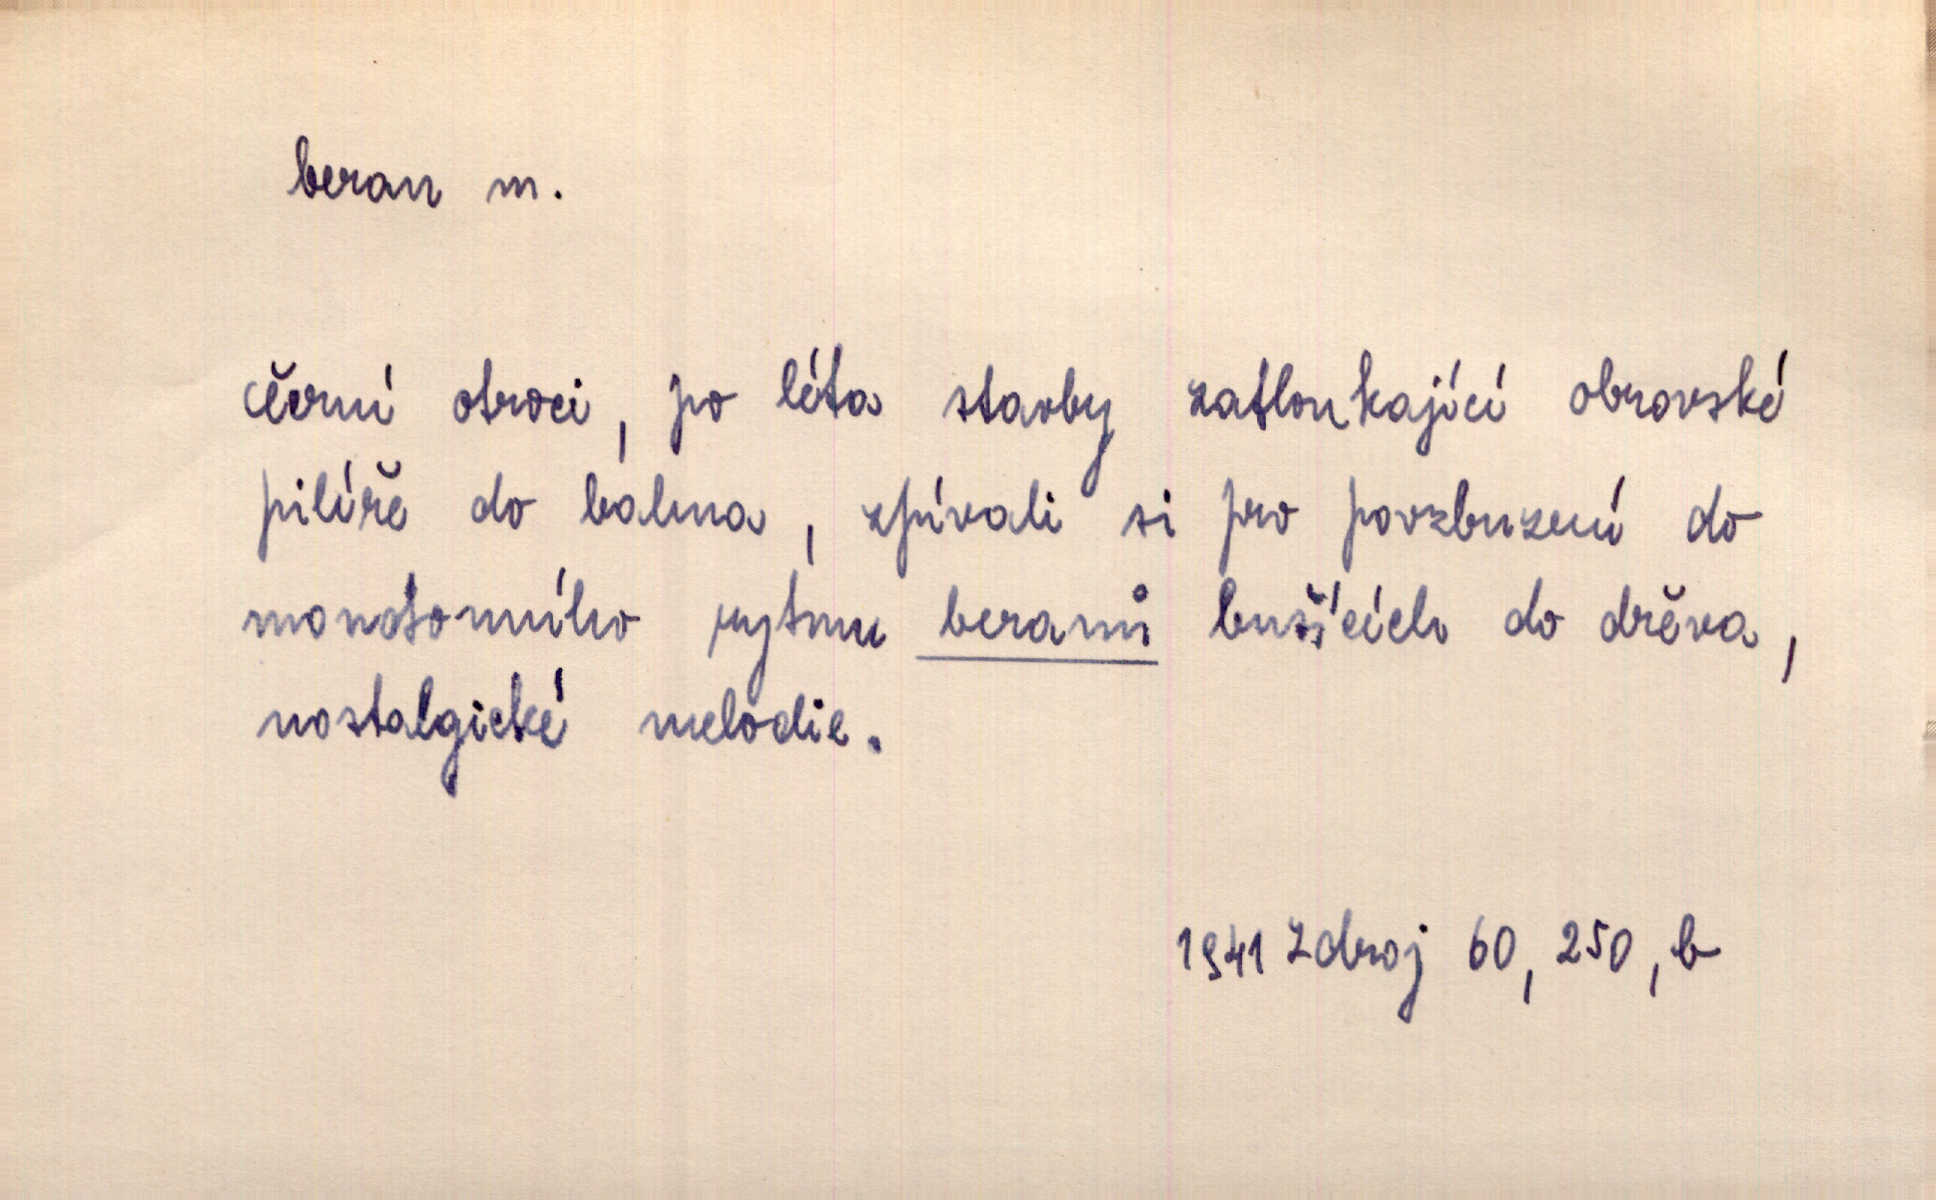 beran m.
černí otroci, po léta stavby zatloukající obrovské
pilíře do bahna, zpívali si pro povzbuzení do
monotonního rytmu beranů bušících do dřeva,
nostalgické melodie.
1941 Zdroj 60, 250, b